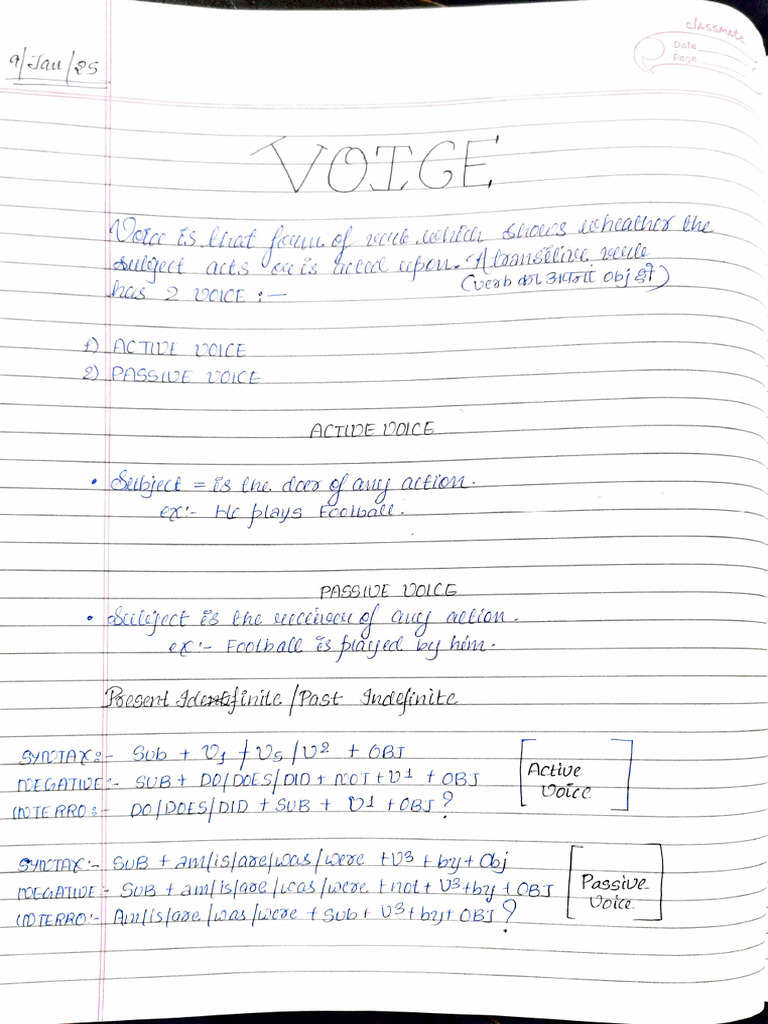 classmate
Date
Page
9/Jan/25
VOICE
Voice is that form of verb which shows wheather the
subject acts or is acted upon. A transitive verb
has 2 VOICE :-
(verb का अपना Obj हो)
1) ACTIVE VOICE
2) PASSIVE VOICE
ACTIVE VOICE
• Subject = is the doer of any action.
ex:- He plays Football.
PASSIVE VOICE
• Subject is the reciever of any action.
ex:- Football is played by him.
Present Indefinite / Past Indefinite
SYNTAX:- Sub + V1 / V5 / V2 + OBJ
NEGATIVE:- SUB + DO/DOES/DID + NOT + V1 + OBJ
INTERRO:- DO/DOES/DID + SUB + V1 + OBJ?
Active
Voice
SYNTAX:- SUB + am/is/are/was/were + V3 + by + Obj
NEGATIVE:- SUB + am/is/are/was/were + not + V3 + by + OBJ
INTERRO:- Am/is/are/was/were + Sub + V3 + by + OBJ?
Passive
Voice